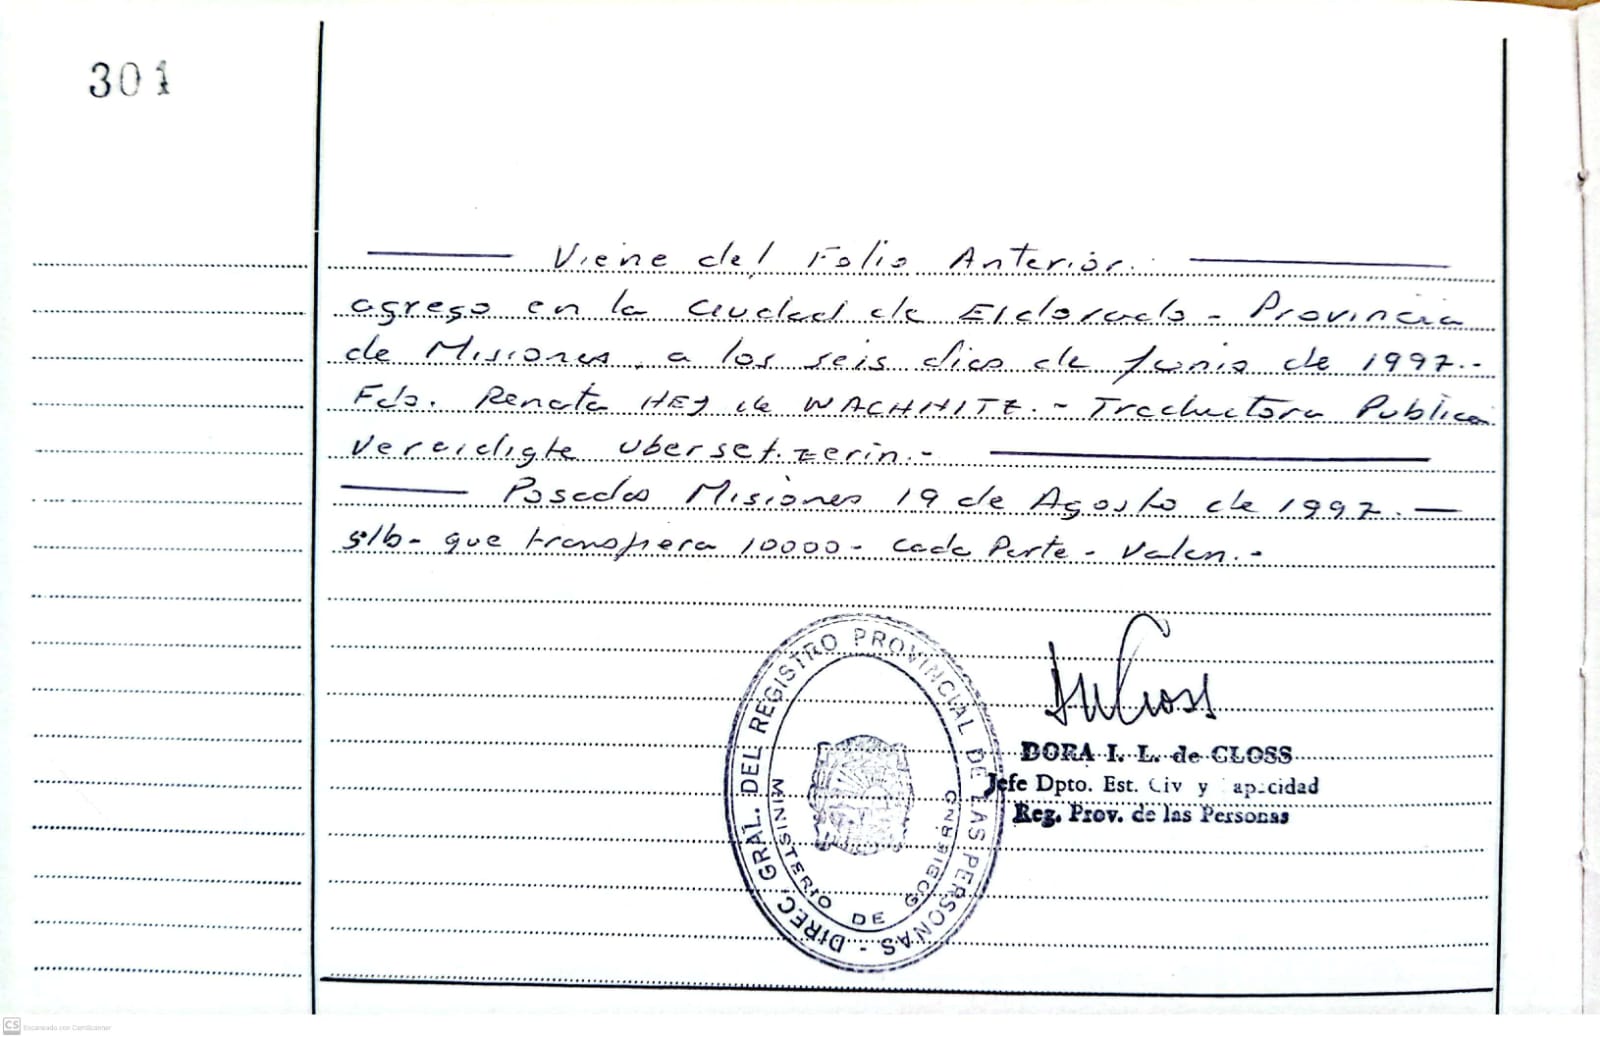 301
Viene del Folio Anterior.
agrego en la Ciudad de Eldorado - Provincia
de Misiones, a los seis dias de Junio de 1997.-
Fdo. Renata HEJ de WACHNITZ.- Traductora Publica
Vereidigte Ubersetzerin.-
Posadas Misiones 19 de Agosto de 1997.
s/b- que transfiera 10000- cada Parte - Valen.-
DIREC. GRAL. DEL REGISTRO PROVINCIAL DE LAS PERSONAS -
MINISTERIO DE GOBIERNO
DORA I. L. de CLOSS
Jefe Dpto. Est. Civ y apacidad
Reg. Prov. de las Personas
CS Escaneado con CamScanner